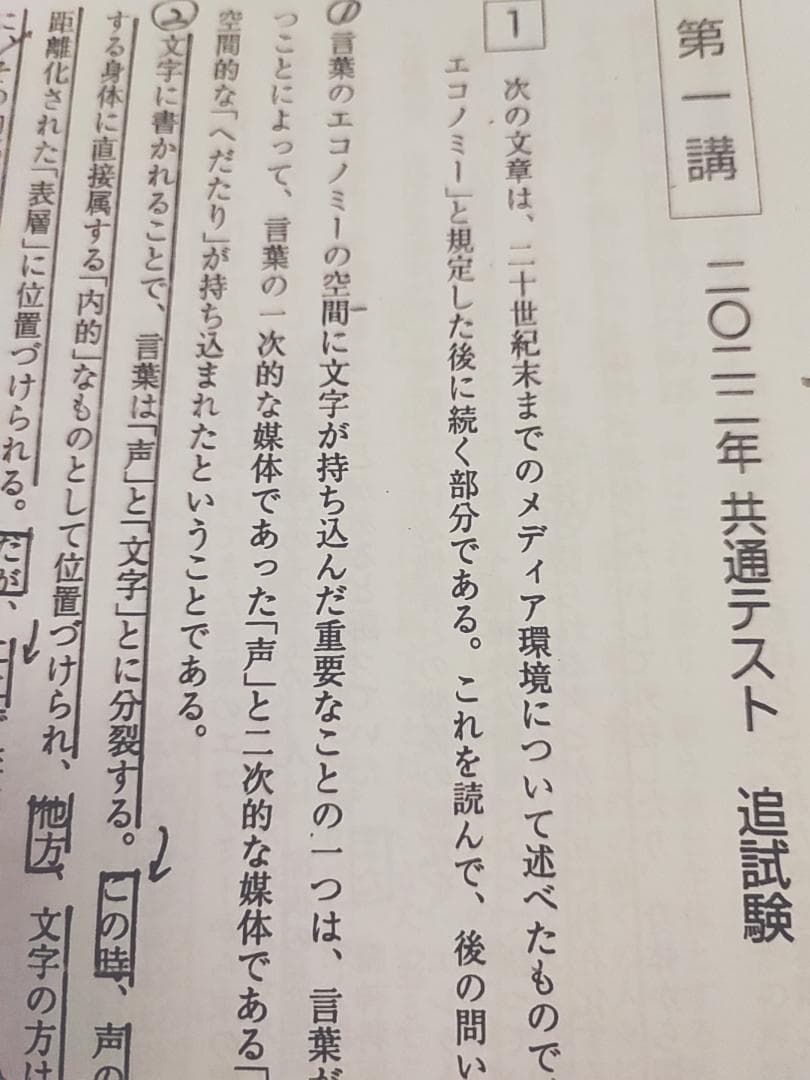 第一講
二〇二二年 共通テスト 追試験
1
次の文章は、二十世紀末までのメディア環境について述べたもので
エコノミー」と規定した後に続く部分である。これを読んで、後の問い
①言葉のエコノミーの空間に文字が持ち込んだ重要なことの一つは、言葉が
つことによって、言葉の一次的な媒体であった「声」と二次的な媒体である「
空間的な「へだたり」が持ち込まれたということである。
②文字に書かれることで、言葉は「声」と「文字」とに分裂する。この時、声の
する身体に直接属する「内的」なものとして位置づけられ、他方、文字の方は
距離化された「表層」に位置づけられる。だが、